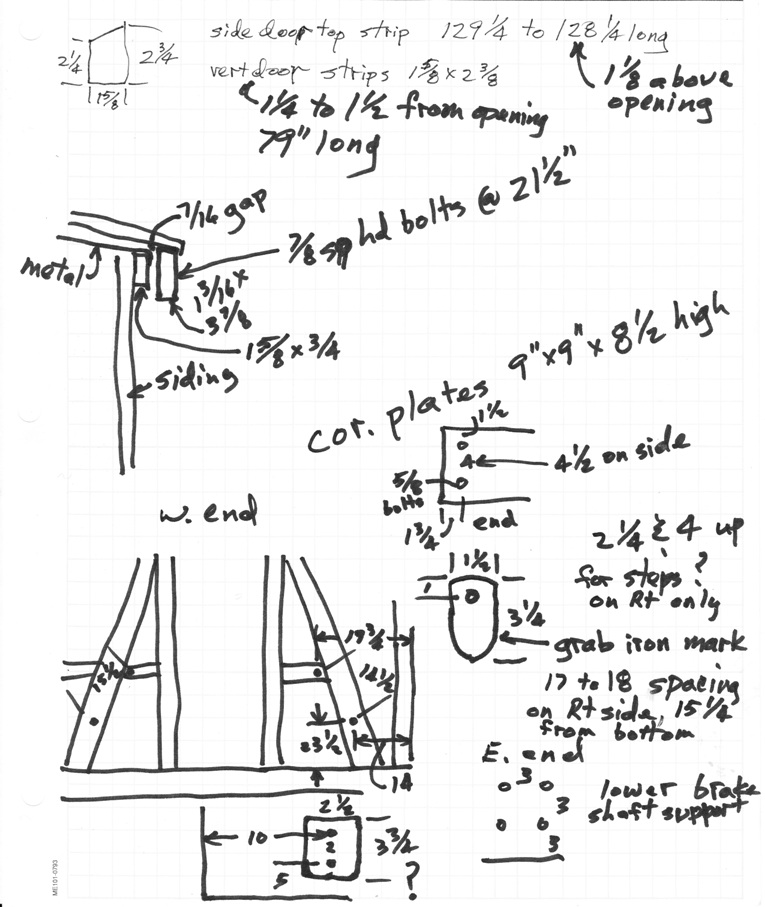 side door top strip 129 1/4 to 128 1/4 long
2 1/4
2 3/4
1 5/8
vert door strips 1 5/8 x 2 3/8
1 1/8 above
opening
1 1/4 to 1 1/2 from opening
79" long
7/16 gap
7/8 sq hd bolts @ 21 1/2"
metal
1 3/16 x
3 7/8
1 5/8 x 3/4
siding
cor. plates 9" x 9" x 8 1/2 high
1 1/2
4
4 1/2 on side
5/8
bolts
1 3/4
end
w. end
2 1/4 & 4 up
for steps?
on Rt only
1 1/2
1
3 1/4
grab iron mark
17 to 18 spacing
on Rt side, 15 1/4
from bottom
19 3/4
15 1/2
14 1/2
23 1/2
14
E. end
3
3
3
lower brake
shaft support
2 1/2
10
2
3 3/4
5
?
ME101-0793